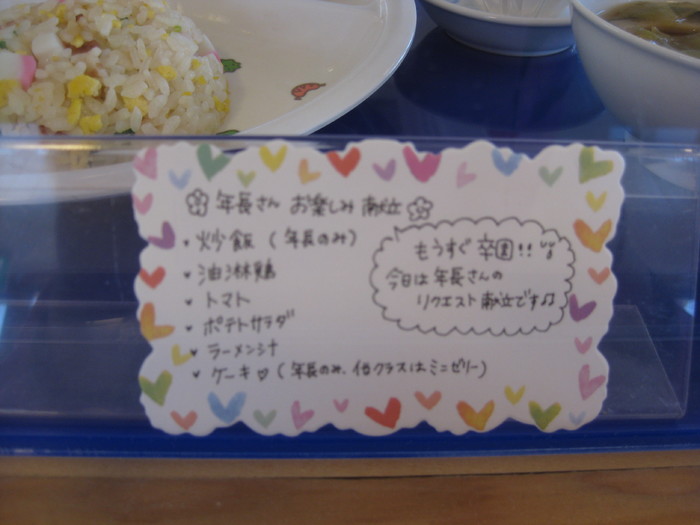 年長さん お楽しみ献立
・炒飯(年長のみ)
・油淋鶏
・トマト
・ポテトサラダ
・ラーメン汁
・ケーキ♡(年長のみ、他クラスはミニゼリー)
もうすぐ卒園!!
今日は年長さんの
リクエスト献立です♫